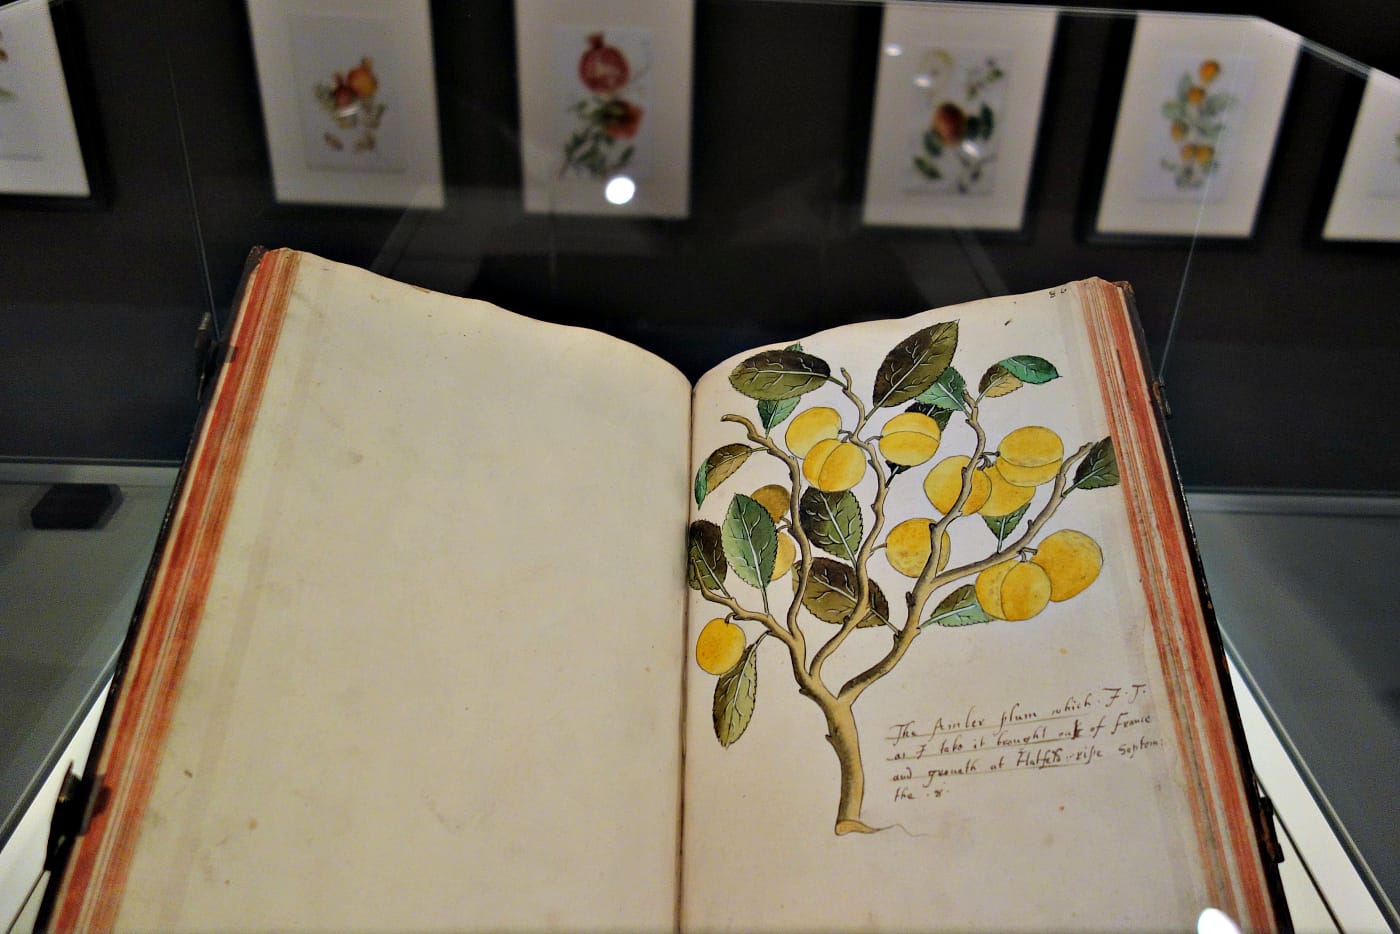 86
The Amber plum which J. T.
as I take it brought out of france
and groweth at Hatfeld. ripe Septem:
the .8.